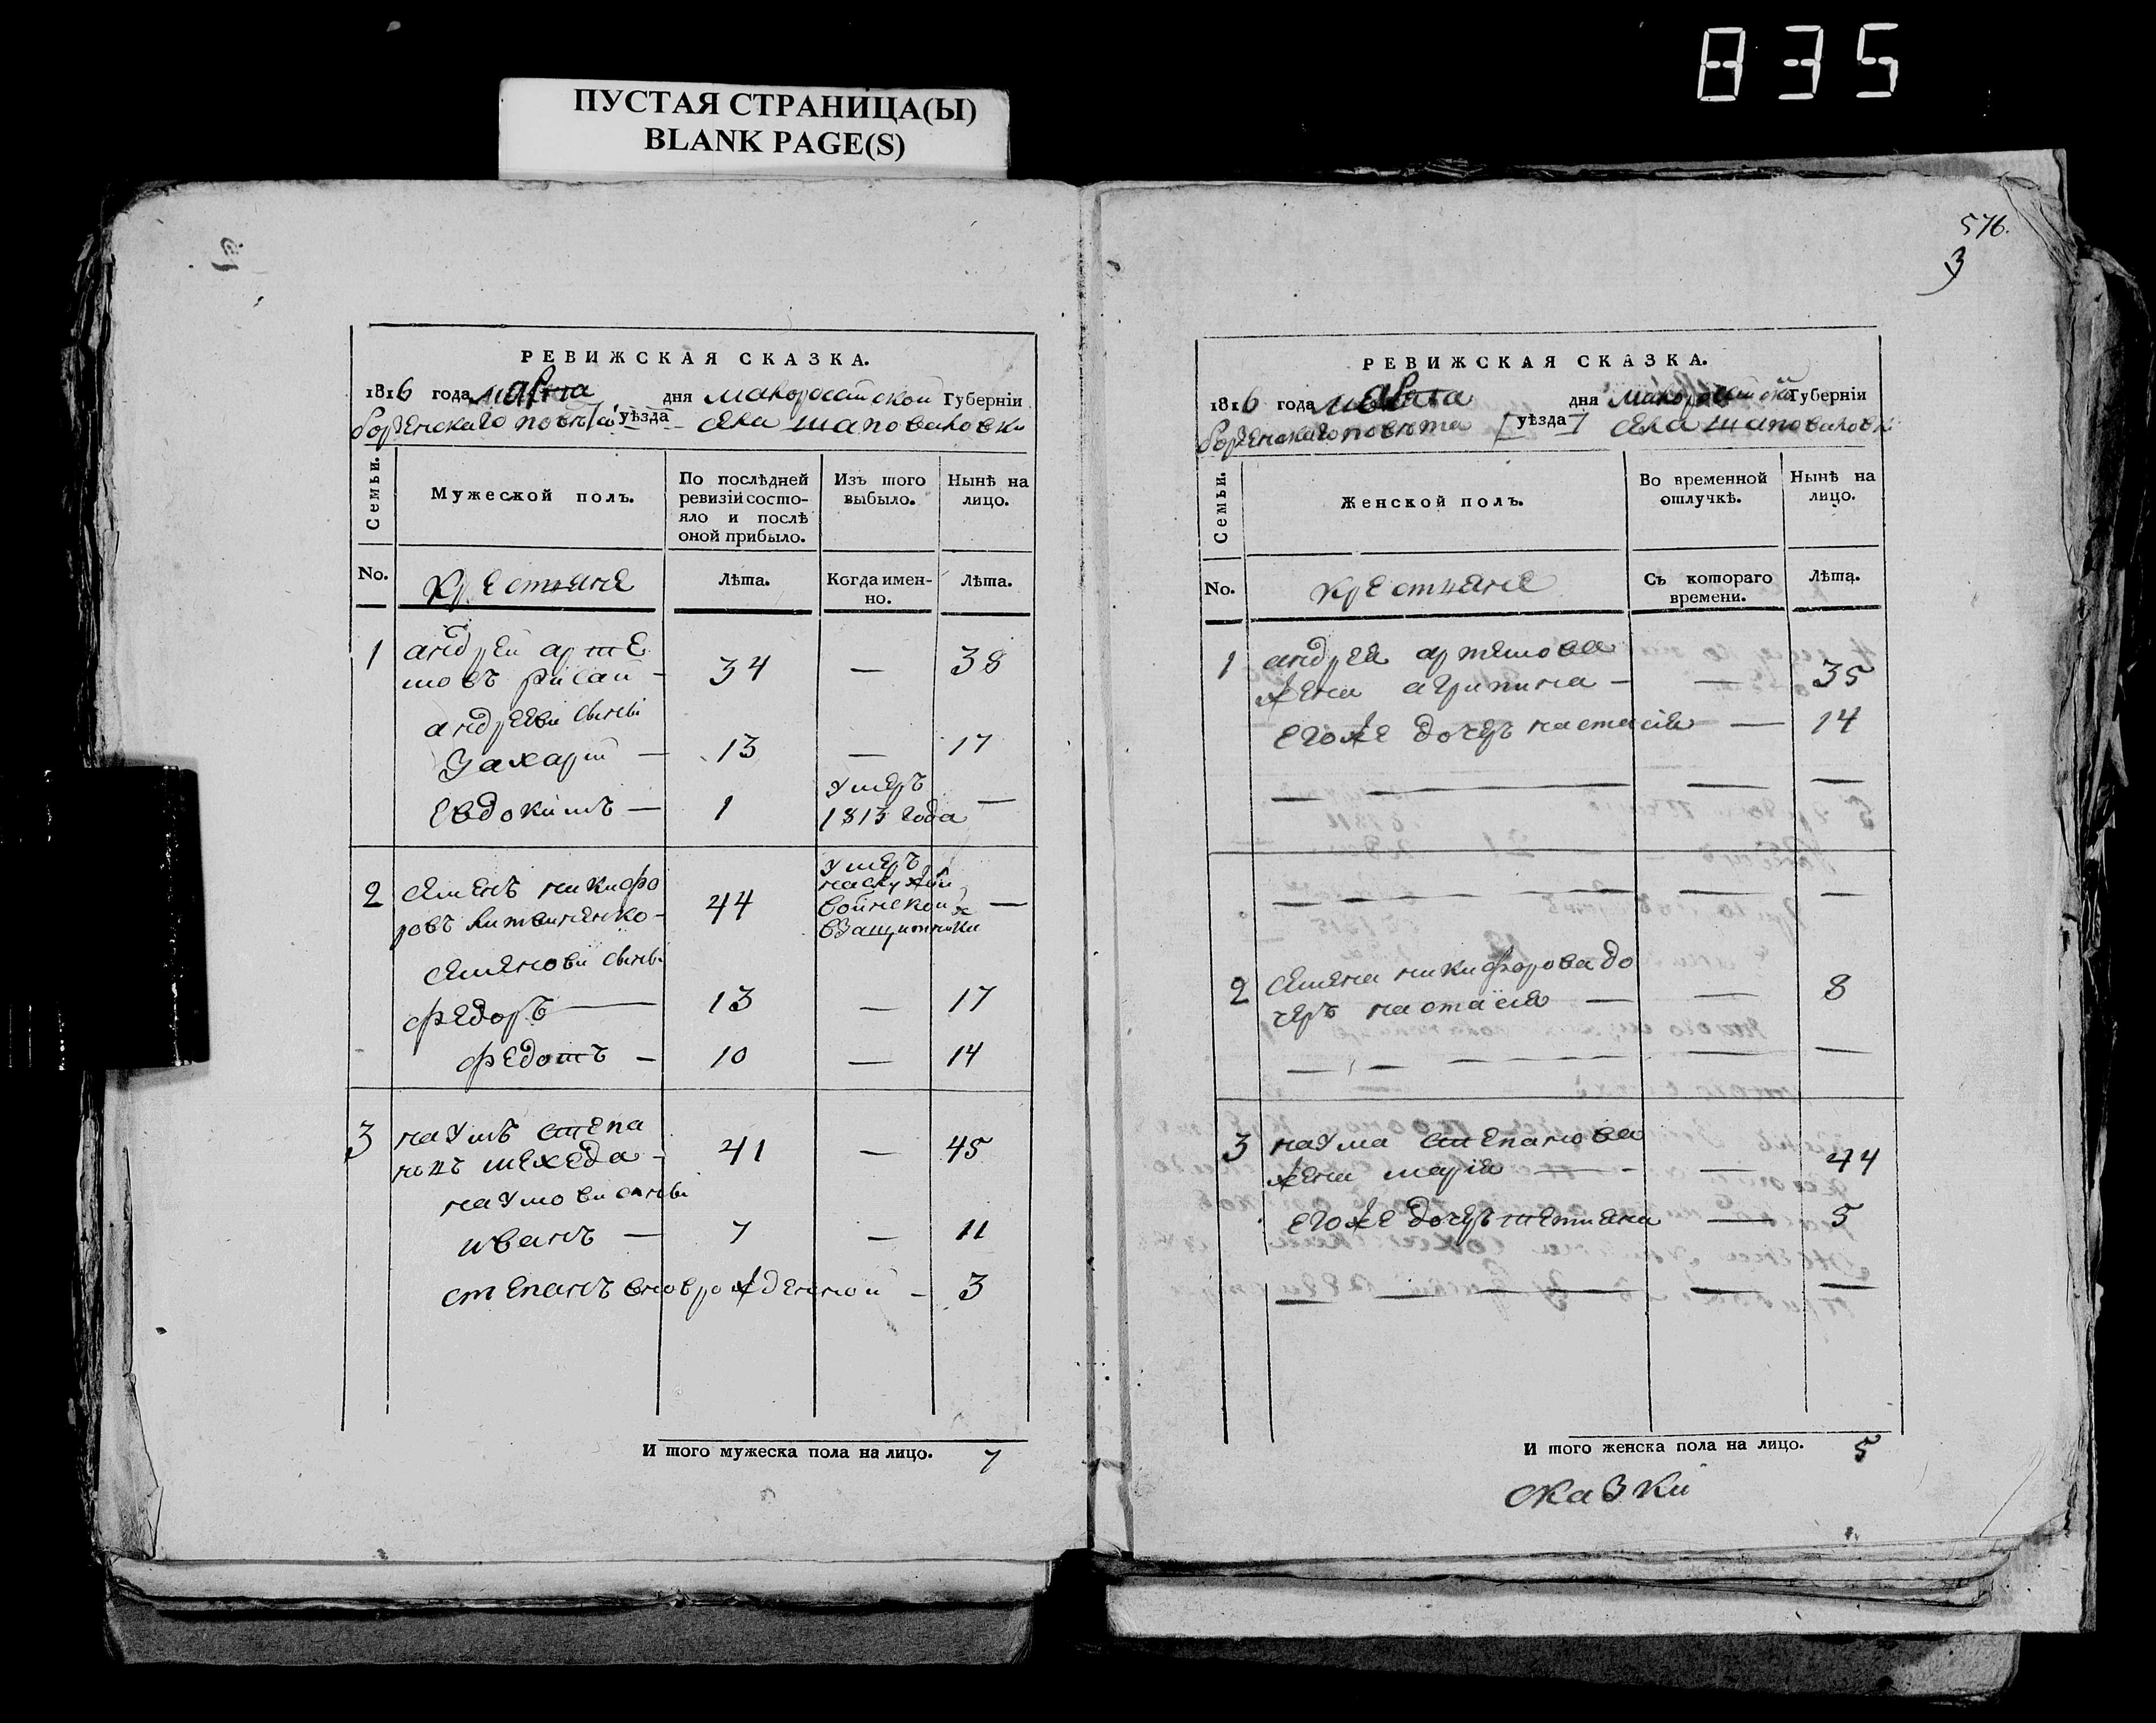 835
ПУСТАЯ СТРАНИЦА(Ы)
BLANK PAGE(S)
РЕВИЖСКАЯ СКАЗКА.
1816 года марта дня малороссийской Губернiи
борзенскаго повѣта уѣзда села шаповаловки
Семьи.
Мужеской полъ.
По послѣдней ревизiи состояло и послѣ оной прибыло.
Изъ того выбыло.
Нынѣ на лицо.
No.
крестьяне
Лѣта.
Когда именно.
Лѣта.
1 андрей арте
мовъ 34 — 38
андреевы сыны
Захарiй — 13 — 17
Евдокимъ — 1 умеръ 1813 года —
2 семенъ никифо
ровъ литвиненко — 44 умеръ на службе воинской —
семеновы сыны
федоръ — 13 — 17
федотъ — 10 — 14
3 наумъ степа
новъ шехеда — 41 — 45
наумовы сыны
иванъ — 7 — 11
степанъ новорожденной — 3
И того мужеска пола на лицо. 7
576.
3
РЕВИЖСКАЯ СКАЗКА.
1816 года марта дня малороссийской Губернiи
борзенскаго повѣта [уѣзда] села шаповаловки
Семьи.
Женской полъ.
Во временной отлучкѣ.
Нынѣ на лицо.
No.
крестьяне
Съ котораго времени.
Лѣта.
1 андрея артемова
жена агрипина — — 35
его же дочерь настасiя — 14
2 семена никифорова до
черь настасiя — — 8
3 наума степанова
жена марiя — — 44
его же дочерь тетияна — 5
И того женска пола на лицо. 5
сказки